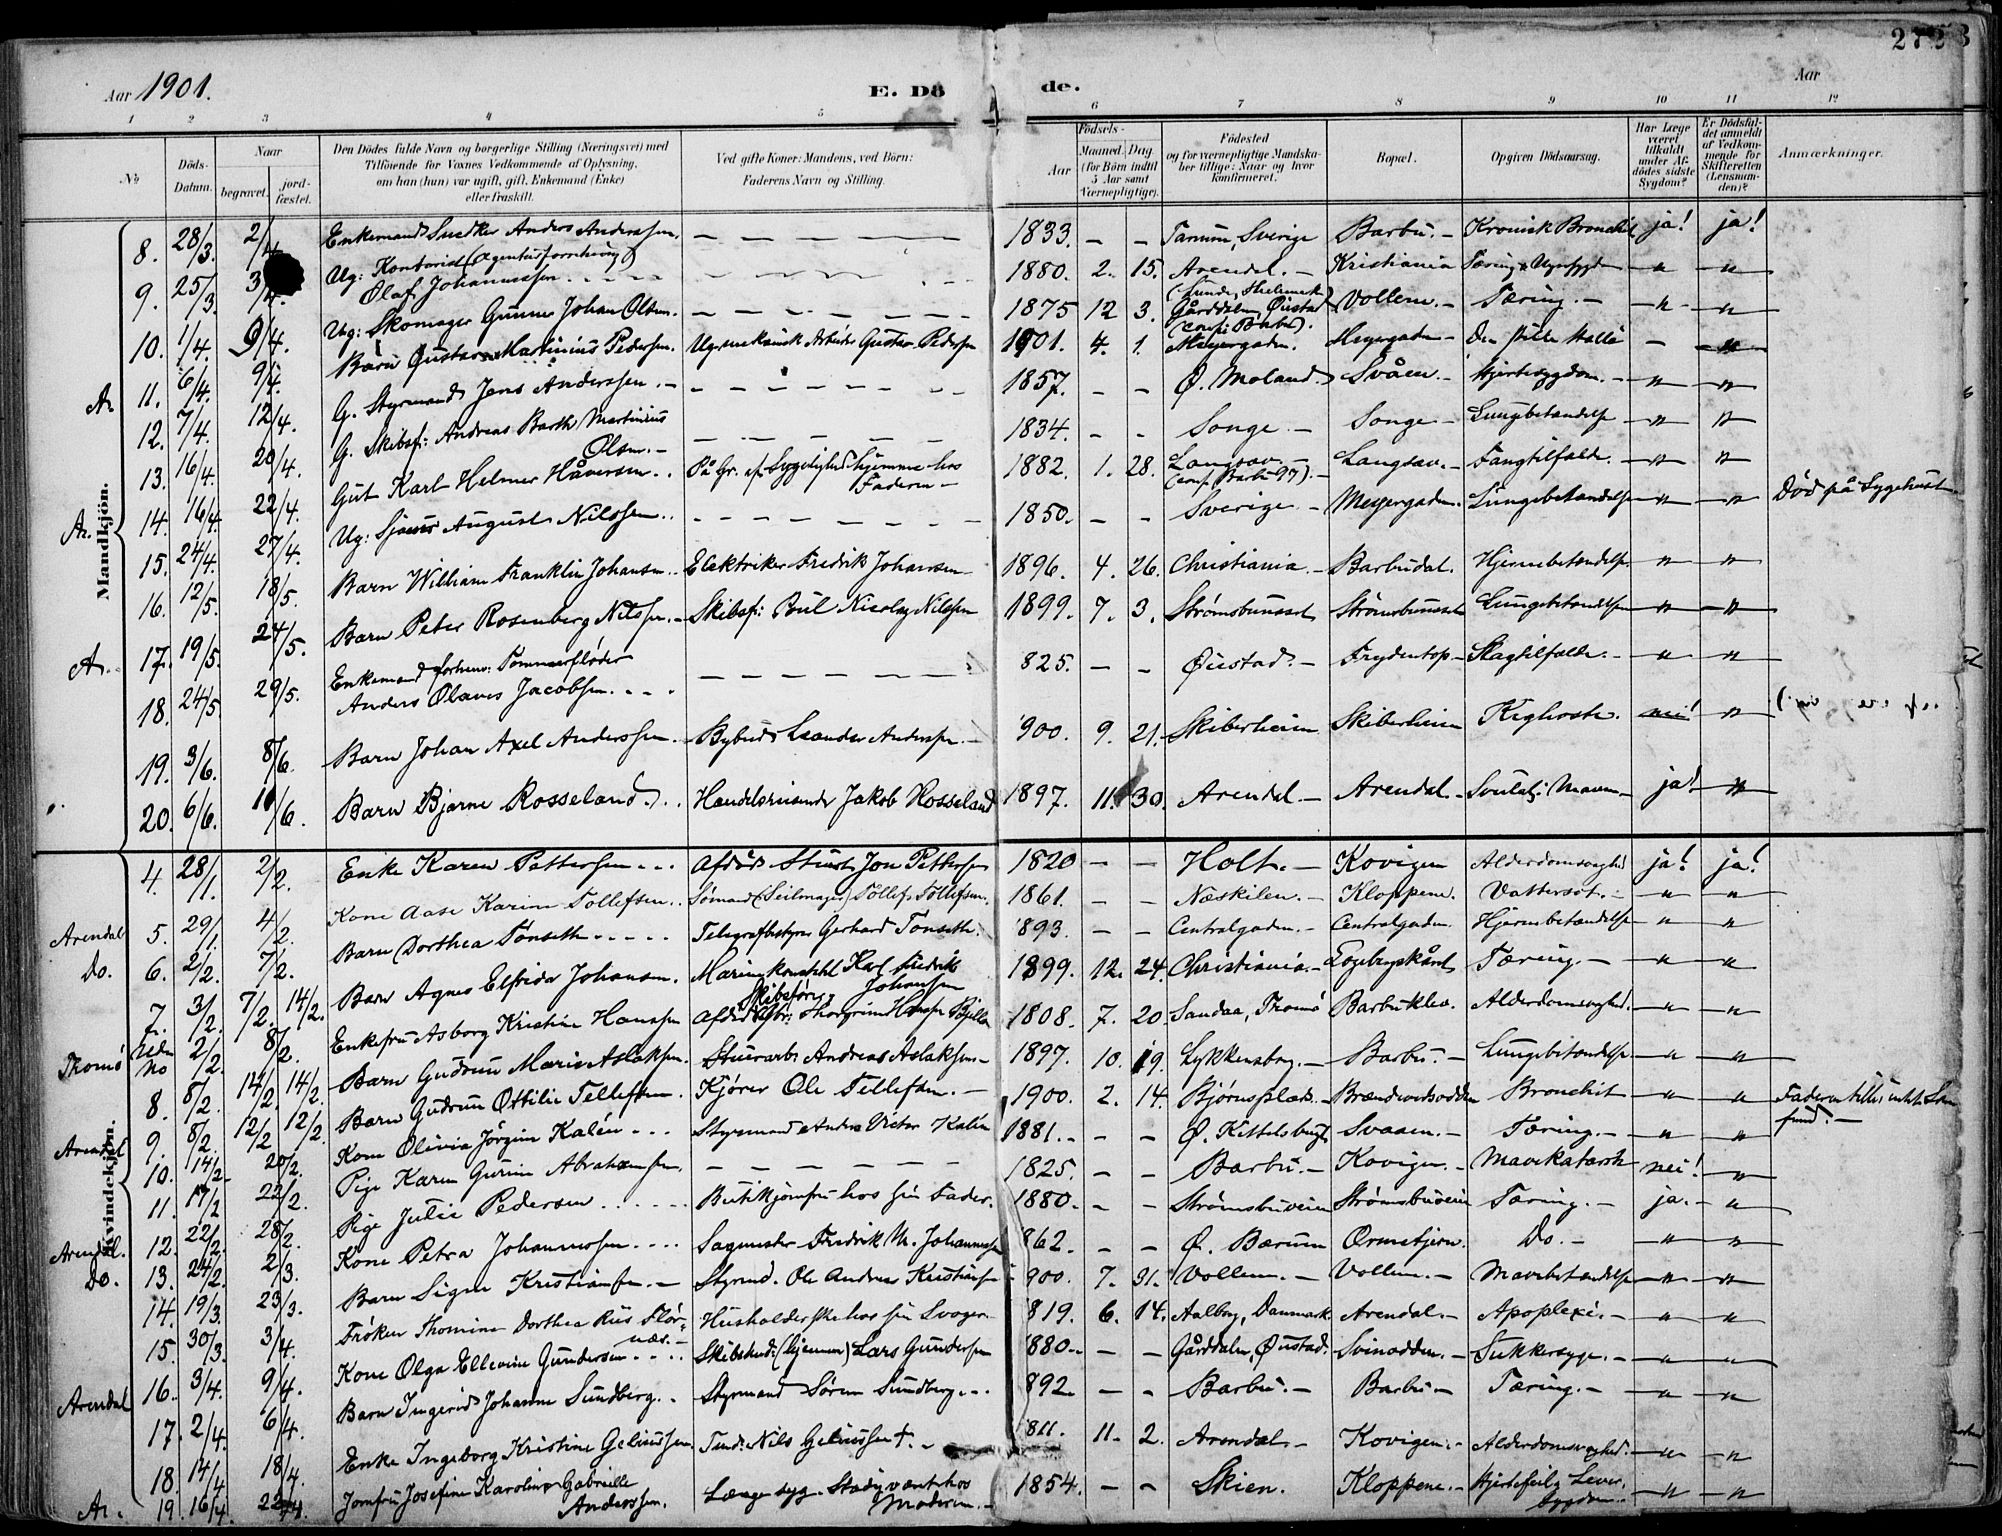 272
Aar 1901.
E. Dö
de.
Aar
1 2 3 4 5 6 7 8 9 10 11 12
№
Döds-Datum.
Naar begravet. jord-fæstet.
Den Dödes fulde Navn og borgerlige Stilling (Næringsvei) med
Tilföiende for Voxnes Vedkommende af Oplysning,
om han (hun) var ugift, gift, Enkemand (Enke)
eller fraskilt.
Ved gifte Koner: Mandens, ved Börn:
Faderens Navn og Stilling.
Födsels-
Aar Maaned. Dag.
(for Börn indtil
5 Aar samt
Værnepligtige).
Födested
og for værnepligtige Mandska-
ber tillige: Naar og hvor
konfirmeret.
Bopæl.
Opgiven Dödsaarsag.
Har Læge
været
tilkaldt
under Af-
dödes sidste
Sygdom?
Er Dödsfal-
det anmeldt
af Vedkom-
mende for
Skifteretten
(Lensman-
den)?
Anmærkninger.
Mandkjön.
8. 28/3. 2/4 Enkemand Snedker Anders Anderssen. 1833. – – Tanum, Sverige Barbu. Kronisk Bronchit ja! ja!
9. 25/3 3/4. Ug: Kontorist (Agenturforretning)
Olaf Johannessen 1880. 2. 15. Arendal. Kristiania Tæring " "
10. 1/4. 9/4. Ug: Skomager Gunnar Johan Olsen. 1875 12 3. Gårddalen, Øiestad Vollene. Tæring. " "
11. 6/4. 9/4. Barn Gustav Martinius Pedersen. Ug. mekanisk Arbeider Gustav Pedersen 1901. 4. 1. Meyergaden. Meyergaden – "
Ar. 12. 7/4. 12/4. G. Styrmand Jens Anderssen. 1857. – – Ø. Moland Svåen. Hjertesygdom. " "
13. 16/4. 20/4. G. Skibsf: Andreas Barth Martinius
Olsen. 1834. – – Songe Songe Lungebetændelse " "
14. 16/4. 22/4. Gut Karl Helmer Håversen. På Gr. af Sygelighed hjemme hos
Faderen 1882. 1. 28. Langsæv.
(conf. Barbu 97). Langsæv. " "
Ar. 15. 24/4. 27/4. Ug: Sjømand August Nilssen. 1850. – – Sverige Meyergaden. Lungebetændelse " " Død på Sygehuset
16. 12/5. 18/5. Barn William Franklin Johansen. Elektriker Fredrik Johansen 1896. 4. 26. Christiania. Barbudal. Hjernebetændelse " "
17. 19/5. 24/5. Barn Peter Rosenberg Nilssen. Skibsf: Nicolay Nilssen 1899. 7. 3. Strømsbuneset Strømsbuneset Lungebetændelse " "
Ar. 18. 24/5. 29/5. Enkemand forhenv: Tømmerfløder
Anders Olaves Jacobsen. 825. – – Øiestad. Frydentop Slagtilfælde. " "
19. 3/6. 8/6. Barn Johan Axel Anderssen. Bybud Leander Anderssen. 900. 9. 21. Skiberheien Skiberheien Kighoste. nei! "
20. 6/6. 10/6. Barn Bjarne Rosseland. Handelsreisende Jakob Rosseland 1897. 11. 30. Arendal Arendal ja! "
Kvindekjön.
4. 28/1. 2/2. Enke Karen Pettersen Afdød Jon Pettersen 1820 – – Holt. Kovigen Alderdomssvaghed ja! ja!
Arendal 5. 29/1. 4/2. Kone Aase Karine Tollefsen. Sømand (Seilmager) Tollef Tollefsen. 1861. – – Næskilen. Kloppene. Vattersot. " "
Do. 6. 2/2. 7/2. Barn Dorthea Tønseth Telegrafbestyrer Gerhard Tønseth. 1893. – – Centralgaden. Centralgaden. Hjernebetændelse " "
7. 3/2. 7/2. 14/2. Barn Agnes Elfrida Johansen. Marinekonstabel Karl Fredrik
Johansen 1899. 12. 24. Christiania. Tæring. " "
Tromö Uden No 2/2. 8/2. Enkefru Asborg Kristine Hanssen Afdød Skibsfører Thorgrim Hansen 1808. 7. 20. Sandaa, Tromö Barbuklev. Alderdomssvaghed. " "
8. 8/2. 14/2. 14/2. Barn Gudrun Marie Aslaksen. Andreas Aslaksen 1897. 10. 19. Lykkensborg. Barbu. Lungebetændelse " "
Arendal 9. 8/2. 12/2 12/2. Barn Gudrun Ottilie Tellefsen. Kjører Ole Tellefsen. 1900. 2. 14. Bjørnsplads. Brændevinsodden Bronchit " "
10. 14/2. 20/2. Kone Olivia Jørgine Kalén Styrmand Anders Victor Kalén 1881. – – Ø. Kittelsbugt, Svaaen. Tæring. " "
11. 17/2 22/2. Pige Karen Gurine Abrahamsen. 1825. – – Barbu. Kovigen. Mavekatarrh nei! "
Arendal. 12. 22/2. 28/2. Pige Julie Pedersen Butikjomfru hos sin Fader. 1880. – – Strømsbuveien Strømsbuveien Tæring. ja. "
Do. 13. 24/2. 2/3. Kone Petra Johannessen Sagmester Fredrik M. Johannessen 862. – – Ø. Bærum Ormetjern. Do. " "
14. 19/3. 23/3. Barn Signe Kristiansen. Styrmd. Ole Andreas Kristiansen 900. 7. 31. Vollene. Vollene. Mavebetændelse " "
15. 30/3. 3/4. Frøken Thomine Dorthea Riis Flør-
næs. Husholderske hos sin Svoger 819. 6. 14. Aalborg, Danmark Arendal. Apoplexi. " "
16. 3/4. 9/4. Kone Olga Ellevine Gundersen Skibstmd: (hjemme) Lars Gundersen 1880. – – Gårddalen, Øiestad. Svinodden. Sukkersyge. " "
Arendal 17. 2/4. 6/4. Barn Ingerid Johanne Sundberg. Styrmand Søren Sundberg. 892. – – Barbu. Barbu Tæring. " "
18. 14/4 18/4. Enke Ingeborg Kristine Geliussen. Nils Geliussen †. 811. 11. 2. Arendal Kovigen. Alderdomssvaghed. " "
Ar. 19. 16/4. 22/4. Jomfru Josefine Karoline Gabrielle
Anderssen. Længe syg. Stadig været hos
Moderen. 1854. – – Skien. Kloppene. Hjertefeil, Lever-
sygdom. " "